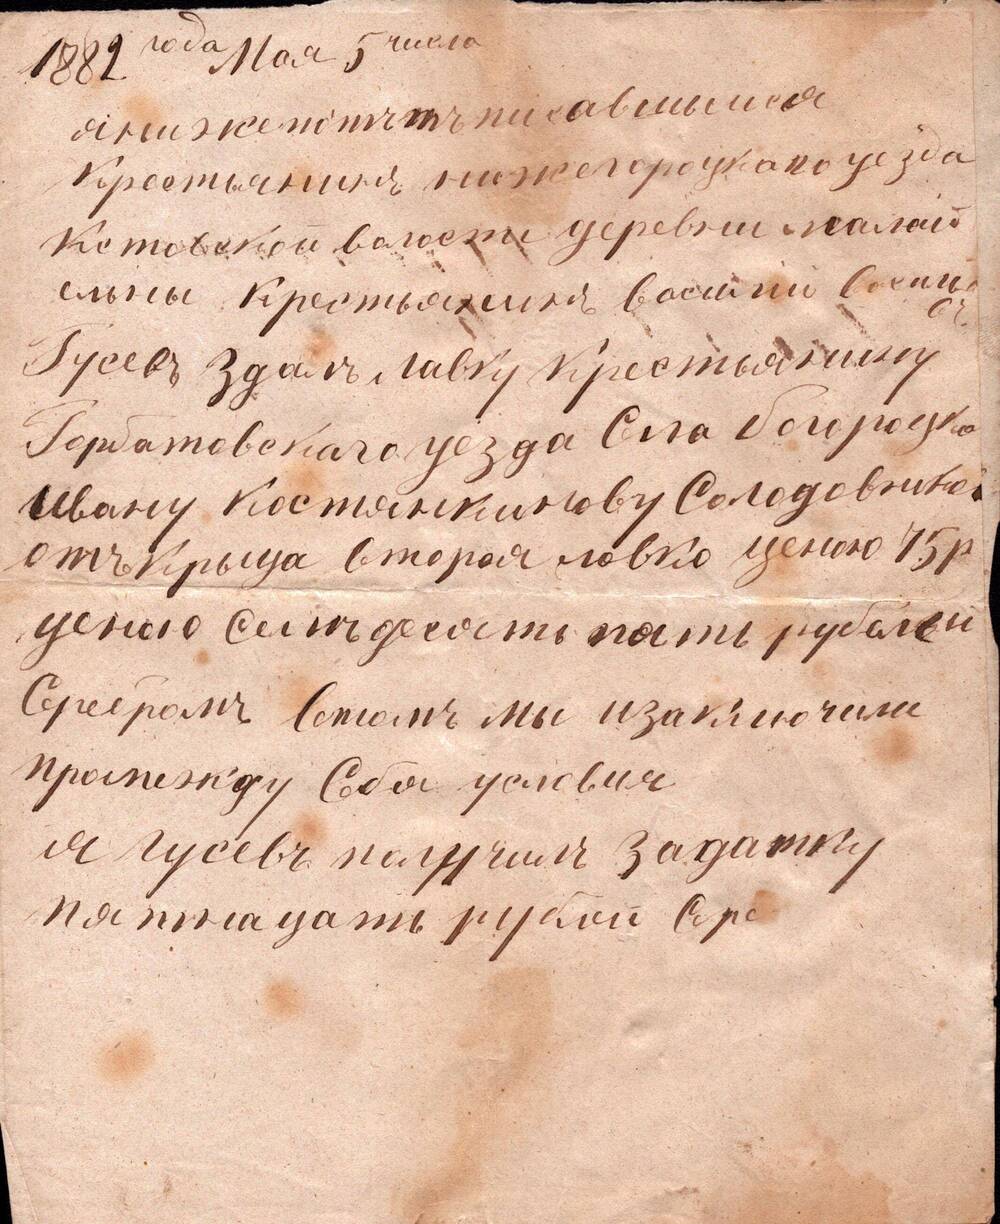 1882 года Мая 5 числа
я нижепотътъписавшыися
Крестьянинъ нижегороцкаго уезда
Кстовской воласти деревни малай
ельны Крестьянинъ васи́лий васили
Гусевъ Здалъ лавку Крестьянину
Горбатовскаго уезда Села богороцка
Ивану Костянкинову Солодовнико
отъ Крыца вторая лавка ценою 75 р
ценою Семъдесять пять рублей
Серебромъ Втомъ мы изаключили
промежду Себя условия
я гусевъ получилъ Задатку
пятнацать рублй Сере